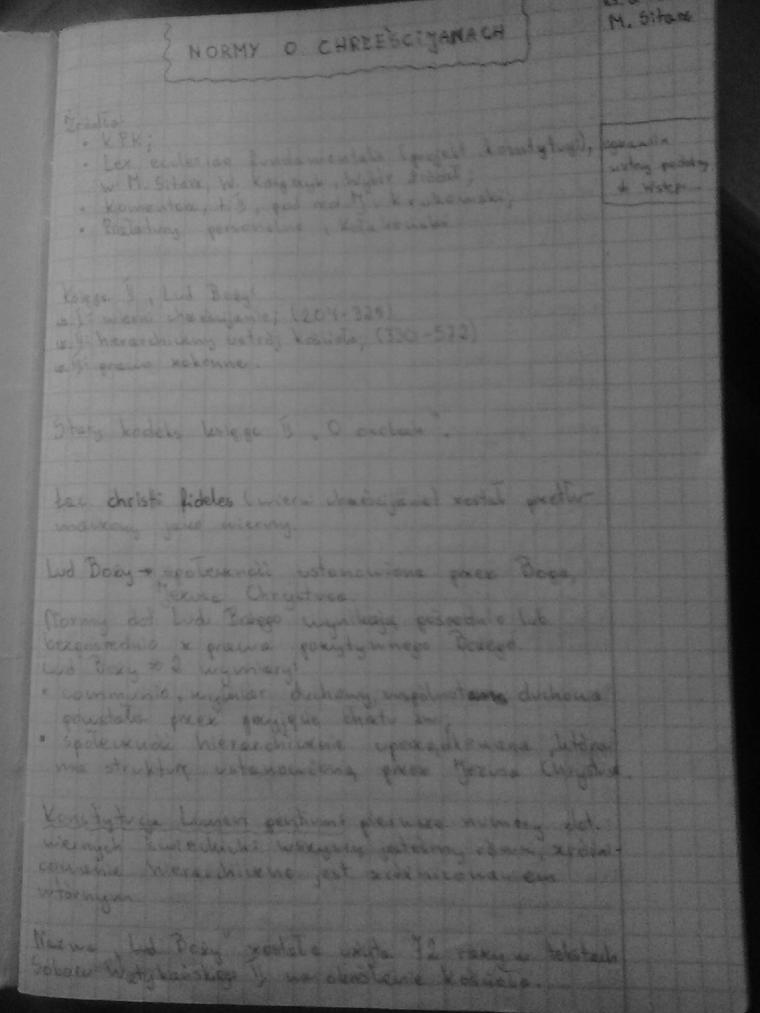 M. Sitarz
NORMY O CHRZEŚCIJANACH
Źródła:
• KPK;
• Lex ecclesiae fundamentalis (projekt konstytucji),
w: M. Sitarz, W. Kacprzyk, Wybór źródeł;
• Komentarz, t. II, pod red. J. Krukowski;
• Prałatury personalne,
egzamin
wstęp
Księga II „Lud Boży"
cz. I: wierni chrześcijanie; (204-329)
cz. II: hierarchiczny ustrój kościoła; (330-572)
cz. III: prawo zakonne.
Stary kodeks księga II „O osobach".
Łac. christi fideles (wierni chrześcijanie) został przetłu-
maczony jako wierny.
Lud Boży → społeczność ustanowiona przez Boga,
Jezusa Chrystusa.
Normy dot. Ludu Bożego wynikają pośrednio lub
bezpośrednio z prawa pozytywnego Bożego.
Lud Boży 2 wymiary:
• communio, wymiar duchowy, duchowa
powstała przez przyjęcie chrztu św.;
• społeczność hierarchicznie uporządkowana, która
ma strukturę ustanowioną przez Jezusa Chrystusa.
Konstytucja Lumen gentium: pierwsze numery dot.
wiernych świeckich; wszyscy jesteśmy równi, zróżni-
cowanie hierarchiczne jest
wtórnym.
Nazwa „Lud Boży" została użyta 72 razy w tekstach
Soboru Watykańskiego II na określenie Kościoła.